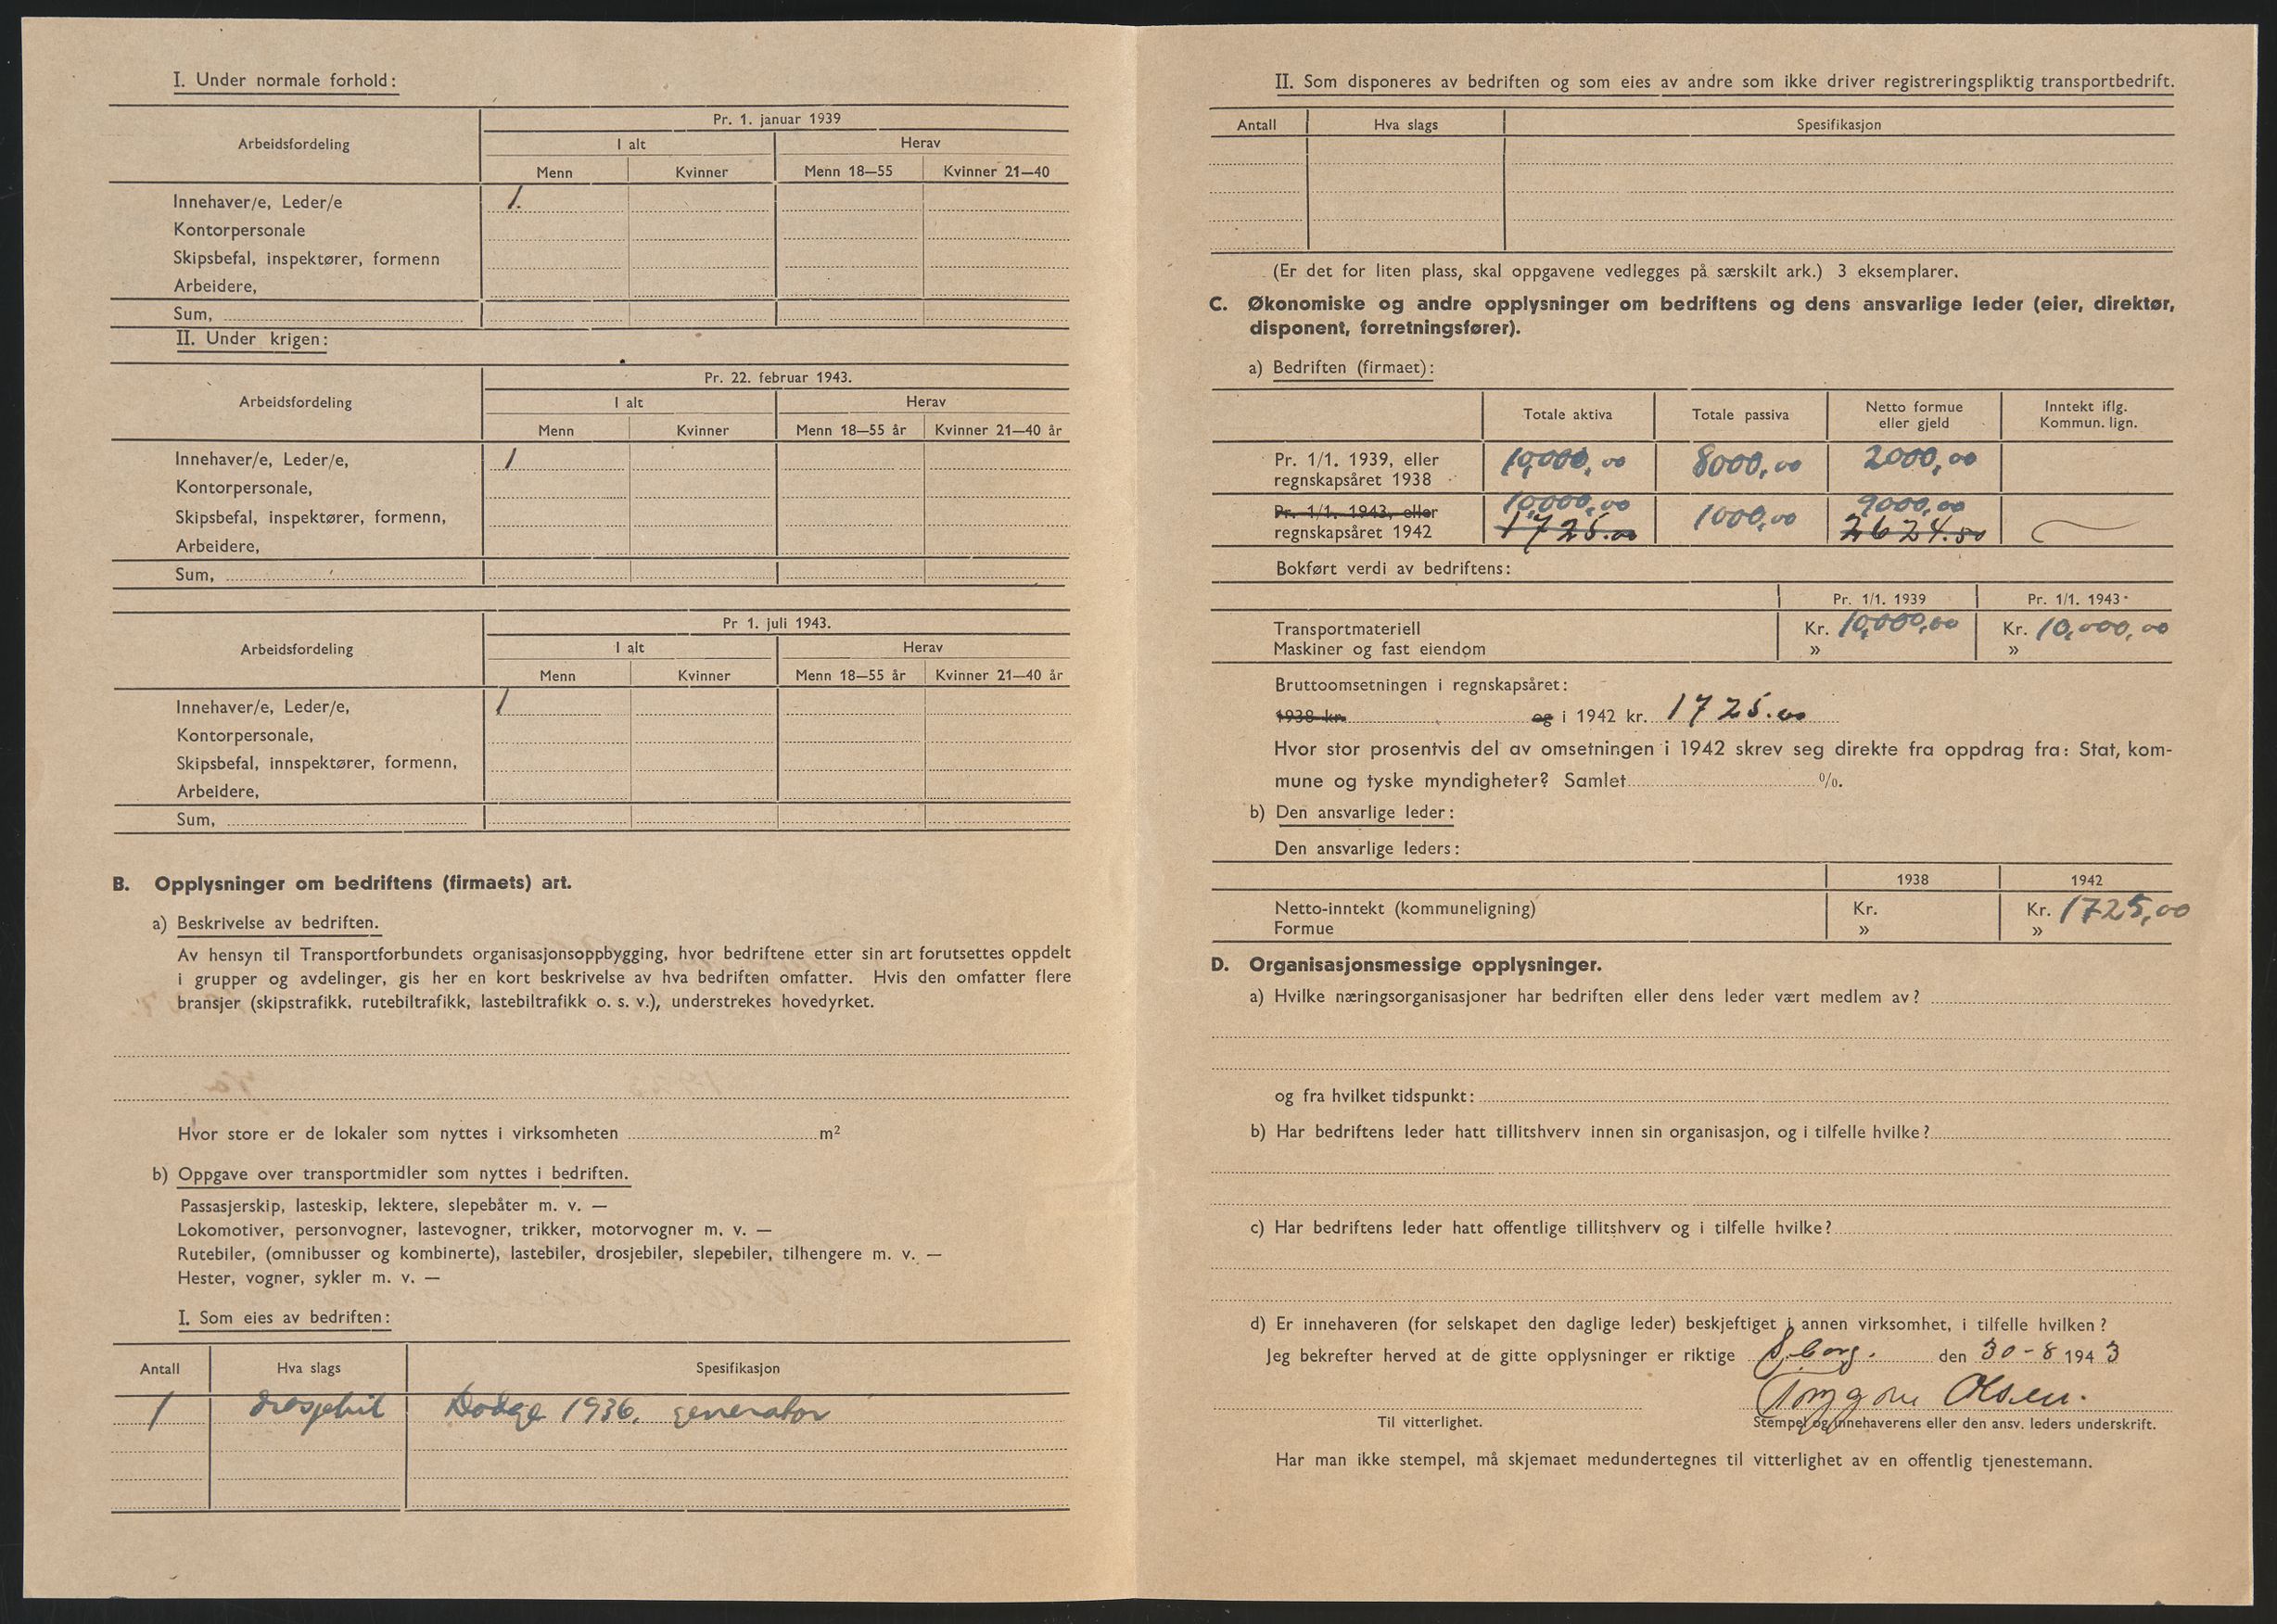 I. Under normale forhold:
Arbeidsfordeling
Pr. 1. januar 1939
I alt
Herav
Menn
Kvinner
Menn 18—55
Kvinner 21—40
Innehaver/e, Leder/e
1.
Kontorpersonale
Skipsbefal, inspektører, formenn
Arbeidere,
Sum,
II. Under krigen:
Arbeidsfordeling
Pr. 22. februar 1943.
I alt
Herav
Menn
Kvinner
Menn 18—55 år
Kvinner 21—40 år
Innehaver/e, Leder/e,
1
Kontorpersonale,
Skipsbefal, inspektører, formenn,
Arbeidere,
Sum,
Arbeidsfordeling
Pr 1. juli 1943.
I alt
Herav
Menn
Kvinner
Menn 18—55 år
Kvinner 21—40 år
Innehaver/e, Leder/e,
1
Kontorpersonale,
Skipsbefal, innspektører, formenn,
Arbeidere,
Sum,
B. Opplysninger om bedriftens (firmaets) art.
a) Beskrivelse av bedriften.
Av hensyn til Transportforbundets organisasjonsoppbygging, hvor bedriftene etter sin art forutsettes oppdelt
i grupper og avdelinger, gis her en kort beskrivelse av hva bedriften omfatter. Hvis den omfatter flere
bransjer (skipstrafikk, rutebiltrafikk, lastebiltrafikk o. s. v.), understrekes hovedyrket.
Hvor store er de lokaler som nyttes i virksomheten m²
b) Oppgave over transportmidler som nyttes i bedriften.
Passasjerskip, lasteskip, lektere, slepebåter m. v. —
Lokomotiver, personvogner, lastevogner, trikker, motorvogner m. v. —
Rutebiler, (omnibusser og kombinerte), lastebiler, drosjebiler, slepebiler, tilhengere m. v. —
Hester, vogner, sykler m. v. —
I. Som eies av bedriften:
Antall
Hva slags
Spesifikasjon
1 drosjebil Dodge 1936, generator
II. Som disponeres av bedriften og som eies av andre som ikke driver registreringspliktig transportbedrift.
Antall
Hva slags
Spesifikasjon
(Er det for liten plass, skal oppgavene vedlegges på særskilt ark.) 3 eksemplarer.
C. Økonomiske og andre opplysninger om bedriftens og dens ansvarlige leder (eier, direktør,
disponent, forretningsfører).
a) Bedriften (firmaet):
Totale aktiva
Totale passiva
Netto formue
eller gjeld
Inntekt iflg.
Kommun. lign.
Pr. 1/1. 1939, eller
regnskapsåret 1938
10,000,00 8000,00 2000,00
Pr. 1/1. 1943, eller
regnskapsåret 1942
10,000,00
1725.00
1000,00
9000,00
2624.50
Bokført verdi av bedriftens:
Pr. 1/1. 1939
Pr. 1/1. 1943
Transportmateriell Kr. 10,000,00 Kr. 10,000,00
Maskiner og fast eiendom » »
Bruttoomsetningen i regnskapsåret:
1938 kr. og i 1942 kr. 1725.00
Hvor stor prosentvis del av omsetningen i 1942 skrev seg direkte fra oppdrag fra: Stat, kom-
mune og tyske myndigheter? Samlet %.
b) Den ansvarlige leder:
Den ansvarlige leders:
1938
1942
Netto-inntekt (kommuneligning) Kr. Kr. 1725,00
Formue » »
D. Organisasjonsmessige opplysninger.
a) Hvilke næringsorganisasjoner har bedriften eller dens leder vært medlem av?
og fra hvilket tidspunkt:
b) Har bedriftens leder hatt tillitshverv innen sin organisasjon, og i tilfelle hvilke?
c) Har bedriftens leder hatt offentlige tillitshverv og i tilfelle hvilke?
d) Er innehaveren (for selskapet den daglige leder) beskjeftiget i annen virksomhet, i tilfelle hvilken?
Jeg bekrefter herved at de gitte opplysninger er riktige S,borg. den 30-8 1943
Olsen.
Til vitterlighet.
Stempel og innehaverens eller den ansv. leders underskrift.
Har man ikke stempel, må skjemaet medundertegnes til vitterlighet av en offentlig tjenestemann.